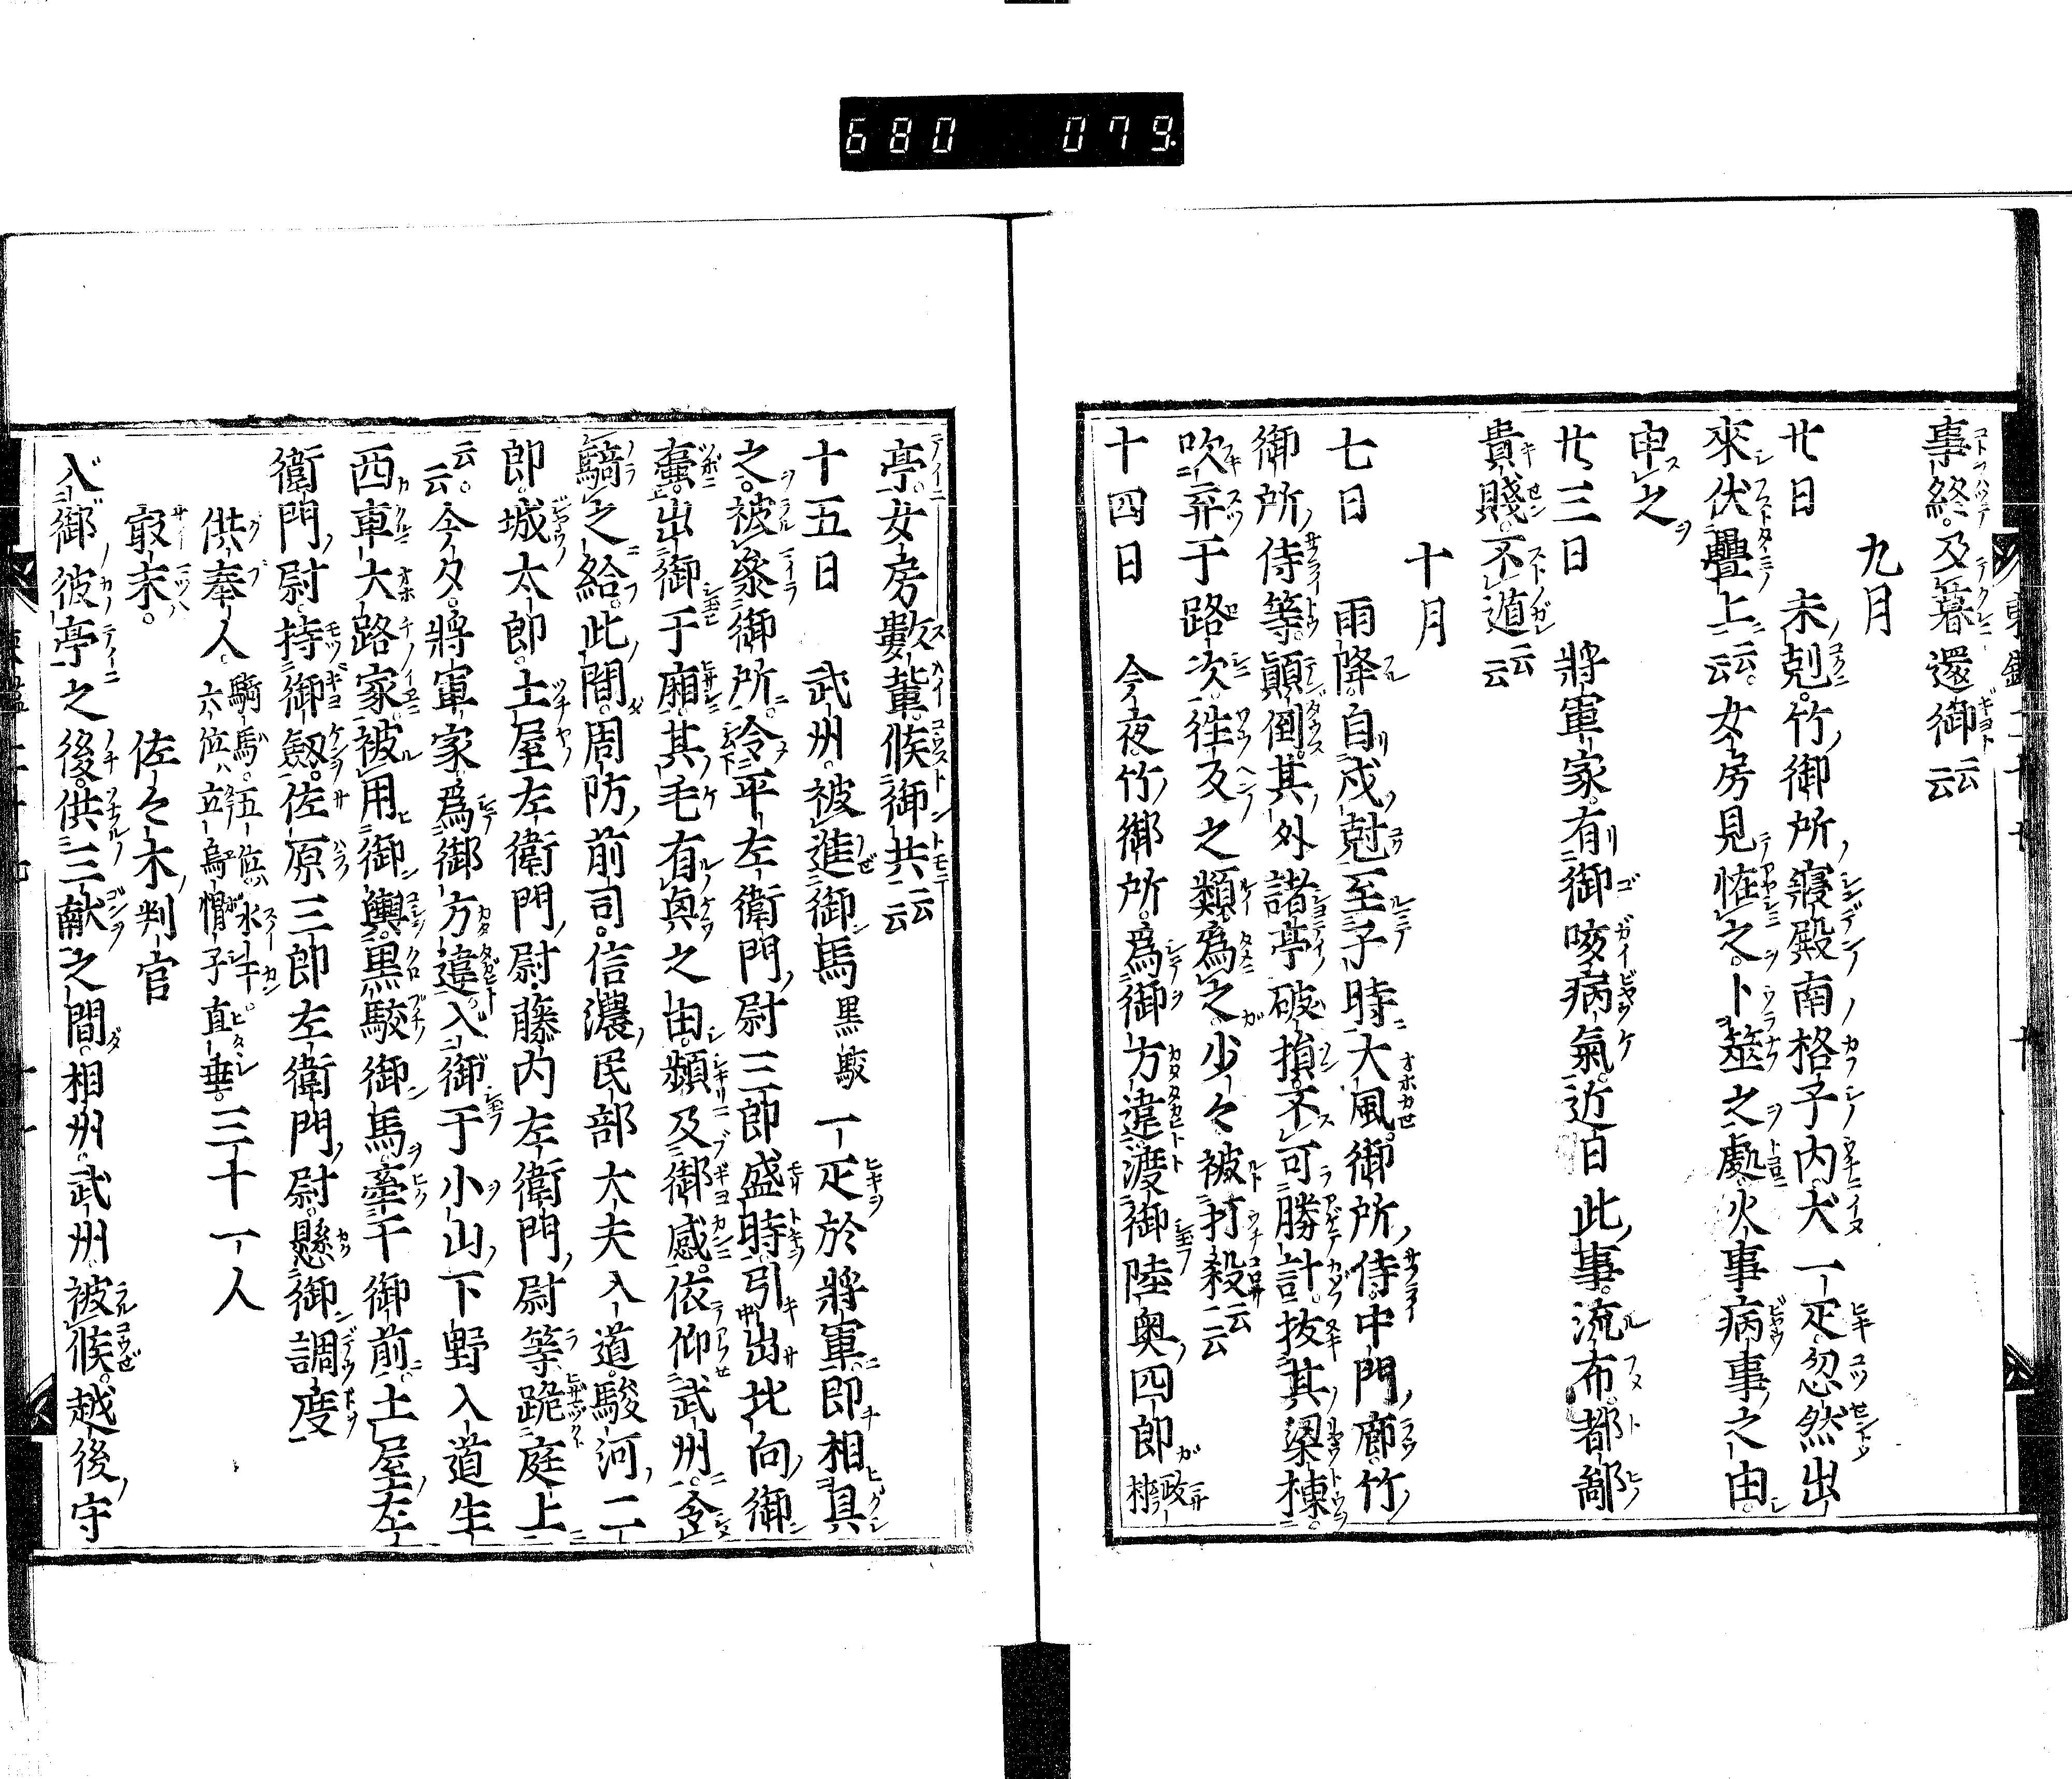 680 079
事終。及暮還御云云
九月
廿日 未剋。竹御所寢殿南格子内。犬一疋。忽然出
來伏疊上云云。女房見恠之。卜筮之處。火事病事之由。
申之
廿三日 將軍家。有御咳病氣。近日此事。流布都鄙
貴賤。不遁云云
十月
七日 雨降。自戌尅至子時大風。御所侍。中門廊。竹
御所侍等。顛倒。其外諸亭破損。不可勝計。拔其梁棟。
吹弃于路次。徃反之類。爲之。少々被打殺云云
十四日 今夜竹御所。爲御方違渡御陸奥四郎政村
亭。女房數輩候御共云云
十五日 武州。被進御馬黒駮一疋於將軍。即相具
之。被參御所。令平左衛門尉三郎盛時。引出北向御
壷。出御于廂。其毛有興之由。頻及御感。依仰武州。令
騎之給。此間。周防前司。信濃民部大夫入道。駿河二
郎。城太郎。土屋左衛門尉。藤内左衛門尉等。跪庭上
云云。今夕。將軍家。爲御方違。入御于小山下野入道生
西車大路家。被用御輿。黒駮御馬。牽于御前。土屋左
衛門尉。持御劔。佐原三郎左衛門尉。懸御調度
供奉人。騎馬。五位ハ水干。六位ハ立烏帽子直垂。三十一人
最末。 佐々木判官
入御彼亭之後。供三献之間。相州。武州。被候。越後守